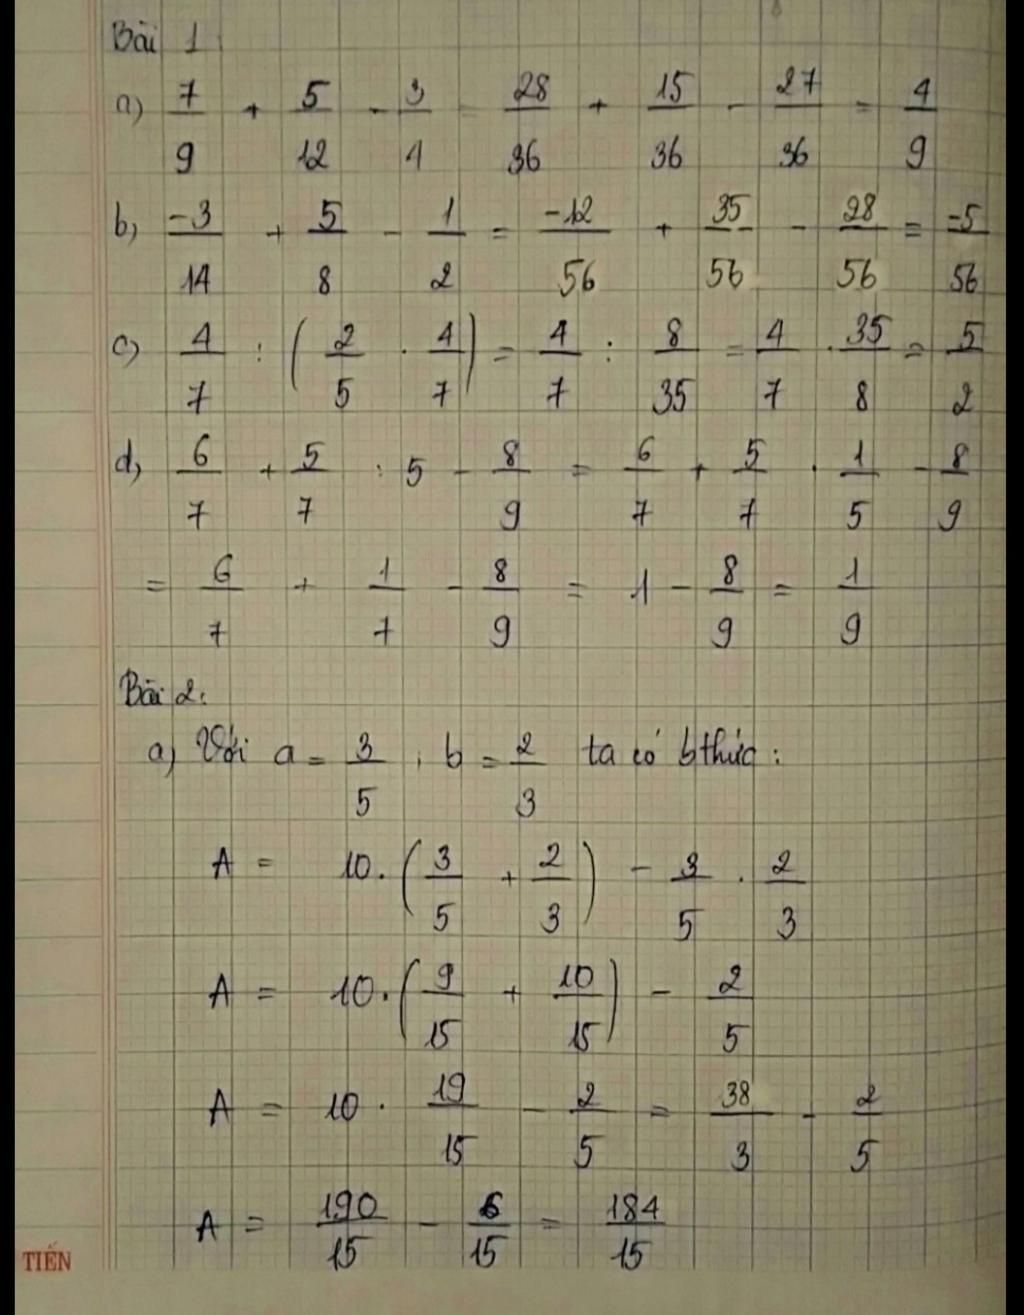 Bài 1
a) 7/9 + 5/12 - 3/4 = 28/36 + 15/36 - 27/36 = 4/9
b, -3/14 + 5/8 - 1/2 = -12/56 + 35/56 - 28/56 = -5/56
c) 4/7 : (2/5 . 4/7) = 4/7 : 8/35 = 4/7 . 35/8 = 5/2
d, 6/7 + 5/7 : 5 - 8/9 = 6/7 + 5/7 . 1/5 - 8/9
= 6/7 + 1/7 - 8/9 = 1 - 8/9 = 1/9
Bài 2:
a) Với a = 3/5 , b = 2/3 ta có bthức :
A = 10. (3/5 + 2/3) - 3/5 . 2/3
A = 10. (9/15 + 10/15) - 2/5
A = 10 . 19/15 - 2/5 = 38/3 - 2/5
A = 190/15 - 6/15 = 184/15
TIẾN